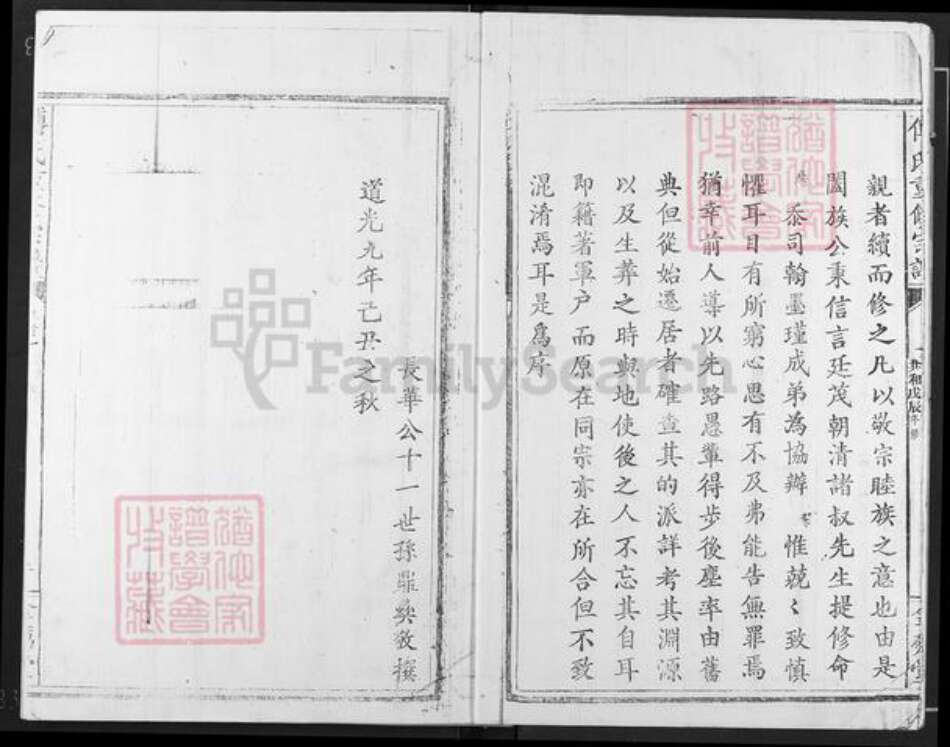 氏重修宗譜
共和戊辰年修
親者續而修之凡以敬宗睦族之意也由是
闔族公秉信言廷茂朝清諸叔先生提修命
忝司翰墨瑾成弟為協辦 惟兢〻致慎
懼耳目有所窮心思有不及弗能告無罪焉
猶幸前人導以先路愚輩得步後塵率由舊
典但從始遷居者確查其的派詳考其淵源
以及生葬之時與地使後之人不忘其自耳
即籍著軍户而原在同宗亦在所合但不致
混淆焉耳是為序
長華公十一世孫鼎奕敬撰
道光九年己丑之秋
猶他家
譜學會
收藏
猶他家
譜學會
收藏
FamilySearch